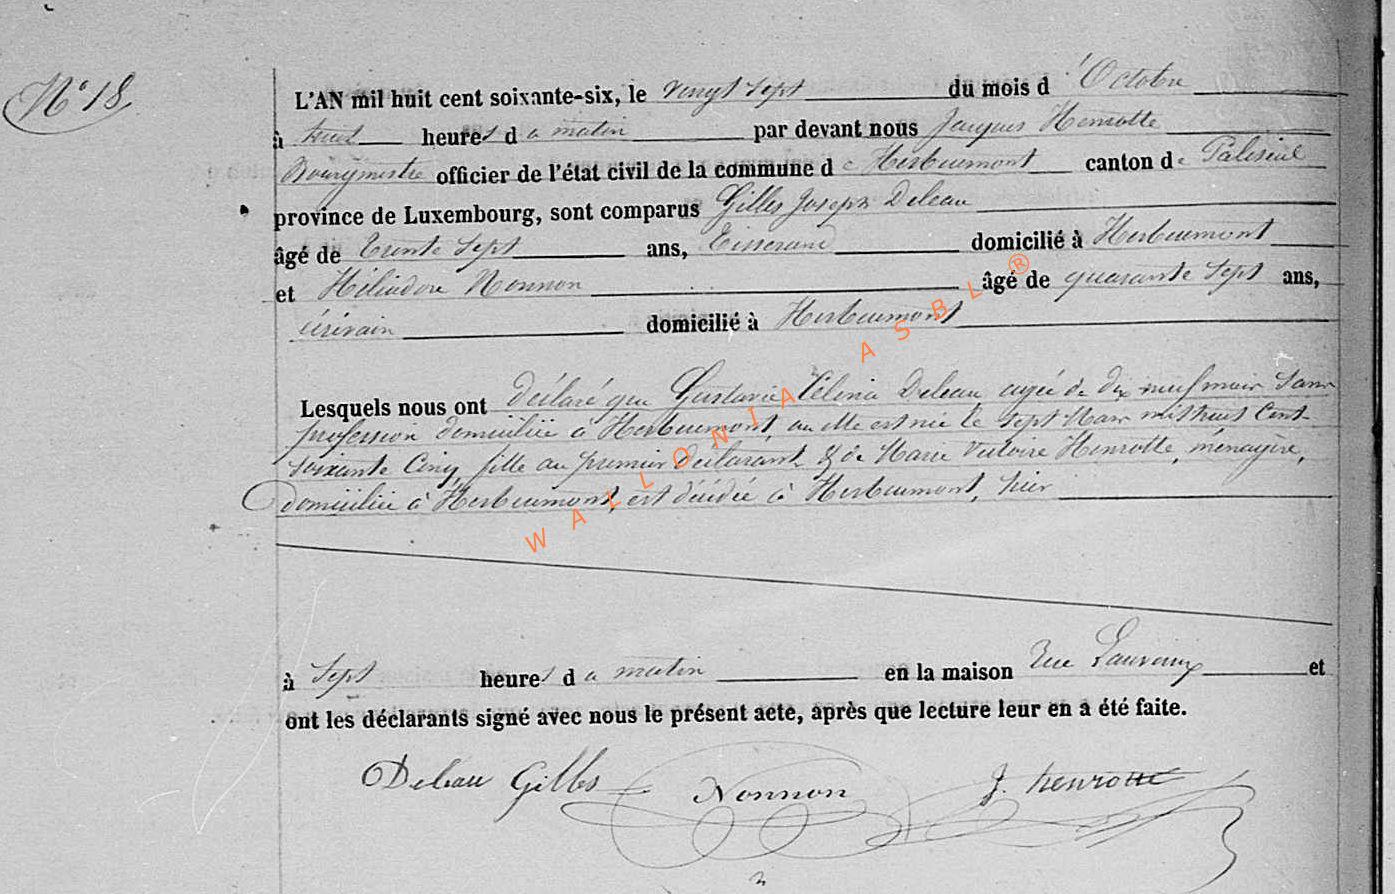 N° 18
L'AN mil huit cent soixante-six, le vingt sept du mois d'Octobre
à huit heures du matin par devant nous Jacques Henrotte
Bourgmestre officier de l'état civil de la commune de Herbeumont canton de Paliseul
province de Luxembourg, sont comparus Gilles Joseph Deleau
âgé de trente sept ans, Tisserand domicilié à Herbeumont
et Héliodore Nonnon âgé de quarante sept ans,
écrivain domicilié à Herbeumont
Lesquels nous ont déclaré que Gustavie Zélinia Deleau agée de dix neuf mois sans
profession domiciliée à Herbeumont, où elle est née le sept Mars mil huit cent
soixante cinq, fille du premier déclarant & de Marie Victoire Henrotte, ménagère,
domiciliée à Herbeumont, est décédée à Herbeumont, hier
à Sept heures du matin en la maison rue Lauvaux et
ont les déclarants signé avec nous le présent acte, après que lecture leur en a été faite.
Deleau Gilles Nonnon J. henrotte
WALLONIA ASBL ®